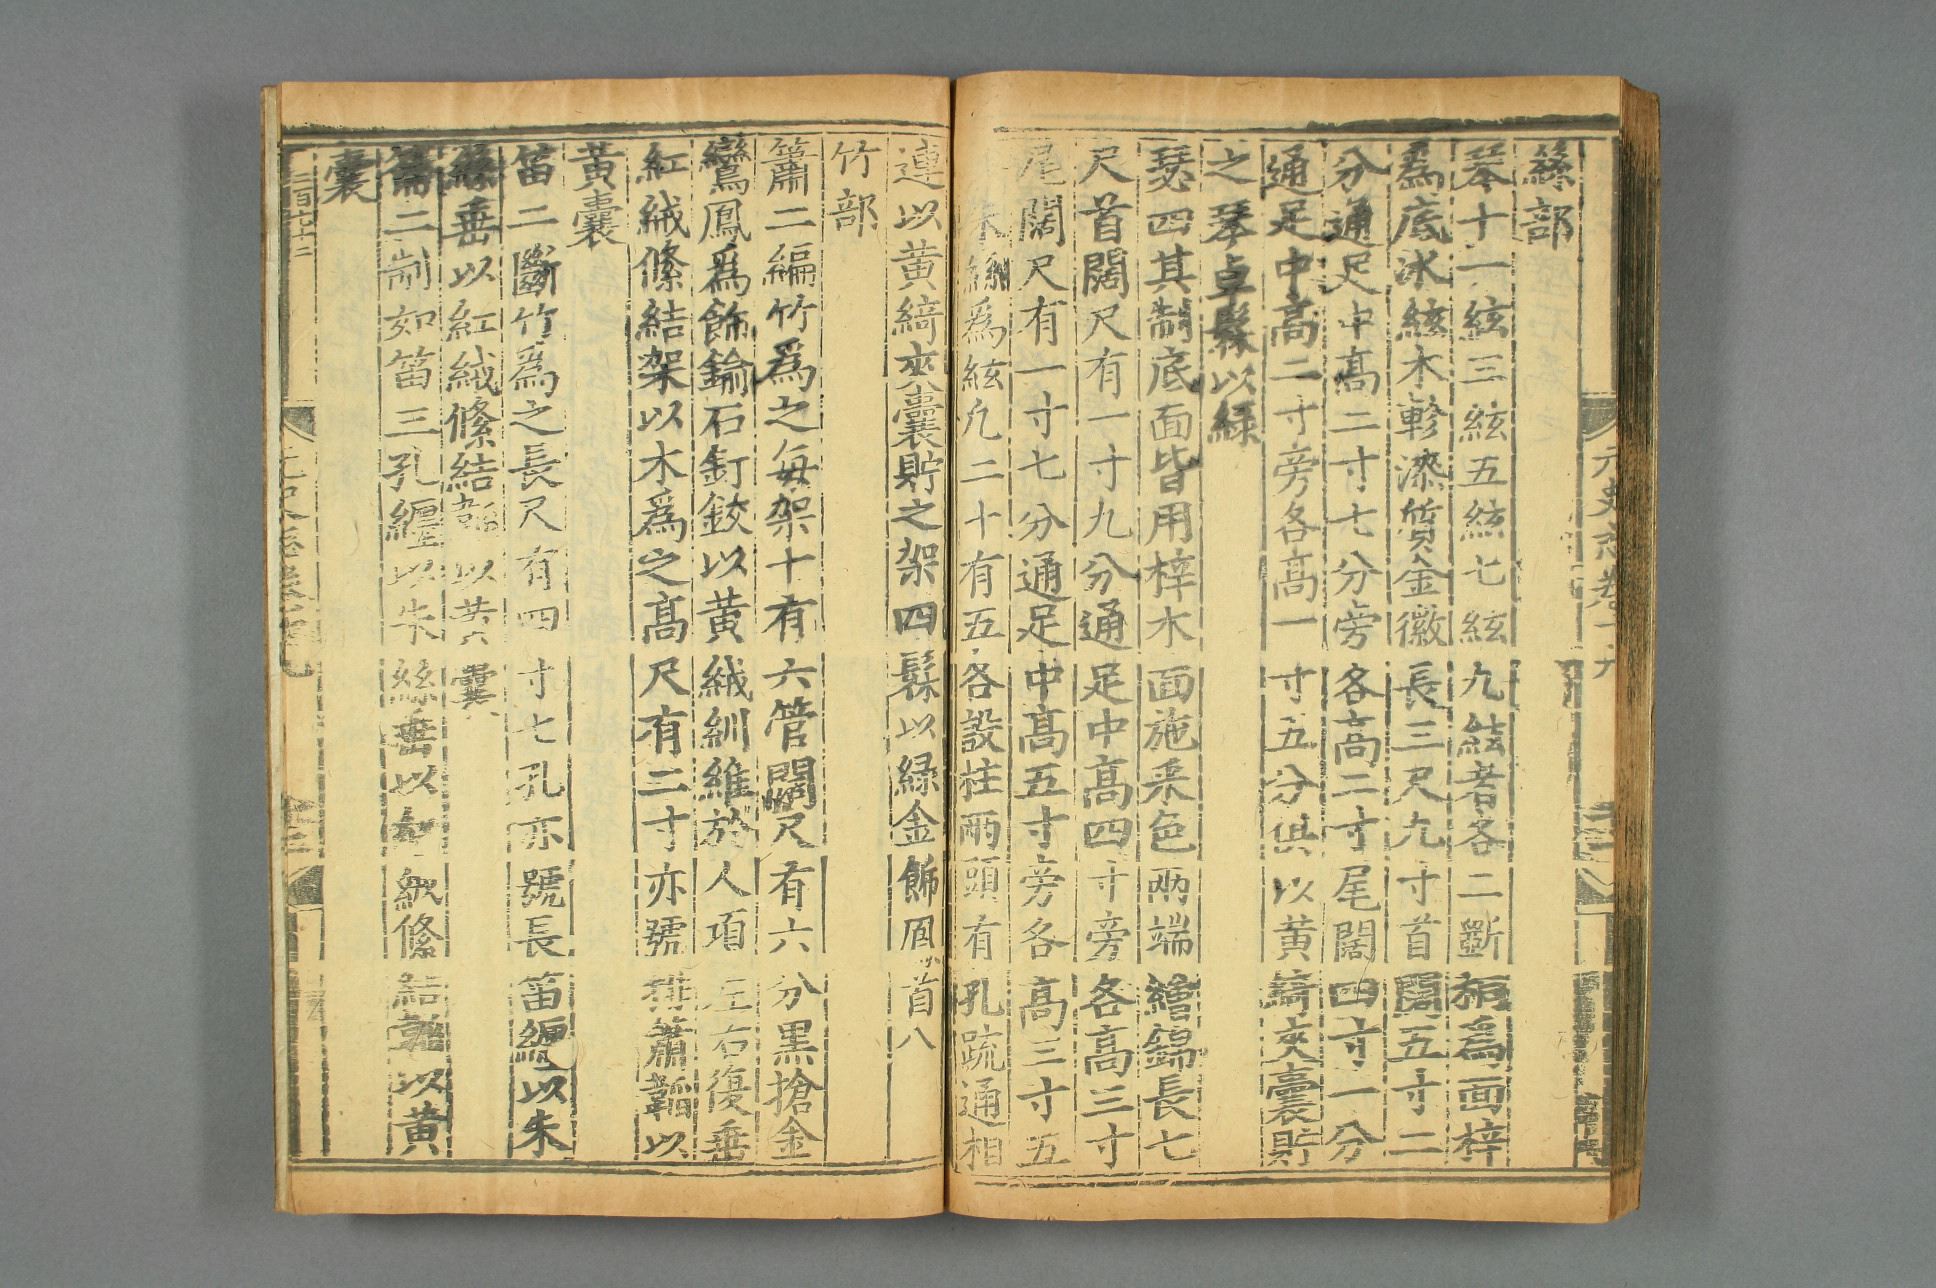 絲部
琴十一絃三絃五絃七絃九絃者各二斵桐爲面梓
爲底冰絃木軫漆質金徽長三尺九寸首闊五寸二
分通足中髙二寸七分旁各高二寸尾闊四寸一分
通足中高二寸旁各高一寸五分俱以黃綺夾囊貯
之琴卓髹以緑
瑟四其制底面皆用梓木面施采色兩端繪錦長七
尺首闊尺有一寸九分通足中高四寸旁各高三寸
尾闊尺有一寸七分通足中髙五寸旁各高三寸五
朱絲爲絃凡二十有五各設柱兩頭有孔疏通相
連以黃綺夾囊貯之架四髹以緑金飾凰首八
竹部
簫二編竹爲之每架十有六管闊尺有六分黑搶金
鸞鳳爲飾鍮石釘鉸以黃絨紃維於人項左右復垂
紅絨絛結架以木爲之髙尺有二寸亦號排簫韜以
黃囊
笛二斷竹爲之長尺有四寸七孔亦號長笛纒以朱
絲垂以紅絨絛結韜以黃囊
籥二制如笛三孔纒以朱絲垂以紅絨絛結韜以黃
囊
元史志卷十九